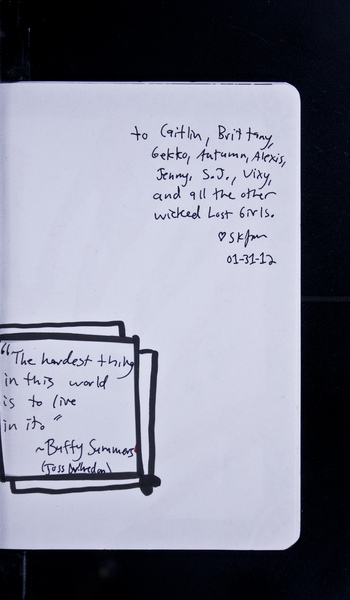 to Caitlin, Brittany,
Gekko, Autumn, Alexis,
Jenny, S.J., Vixy,
and all the other
wicked Lost Girls.
♡ skfm
01-31-12
"The hardest thing
in this world
is to live
in it."
~Buffy Summers
(Joss Whedon)